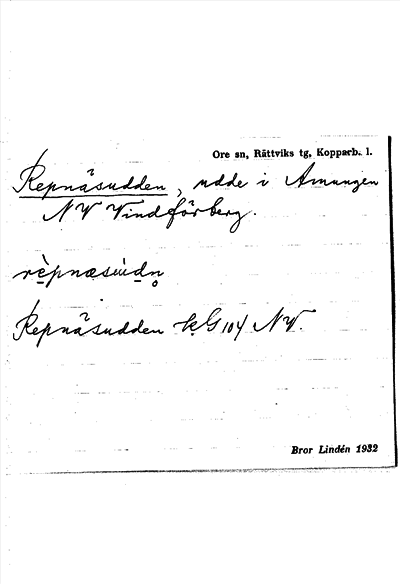 Ore sn, Rättviks tg, Kopparb. l.
Repnäsudden, udde i Amungen
NV Vindförberg.
rèpnæsùdn̥
Repnäsudden k.G 104 NV.
Bror Lindén 1932